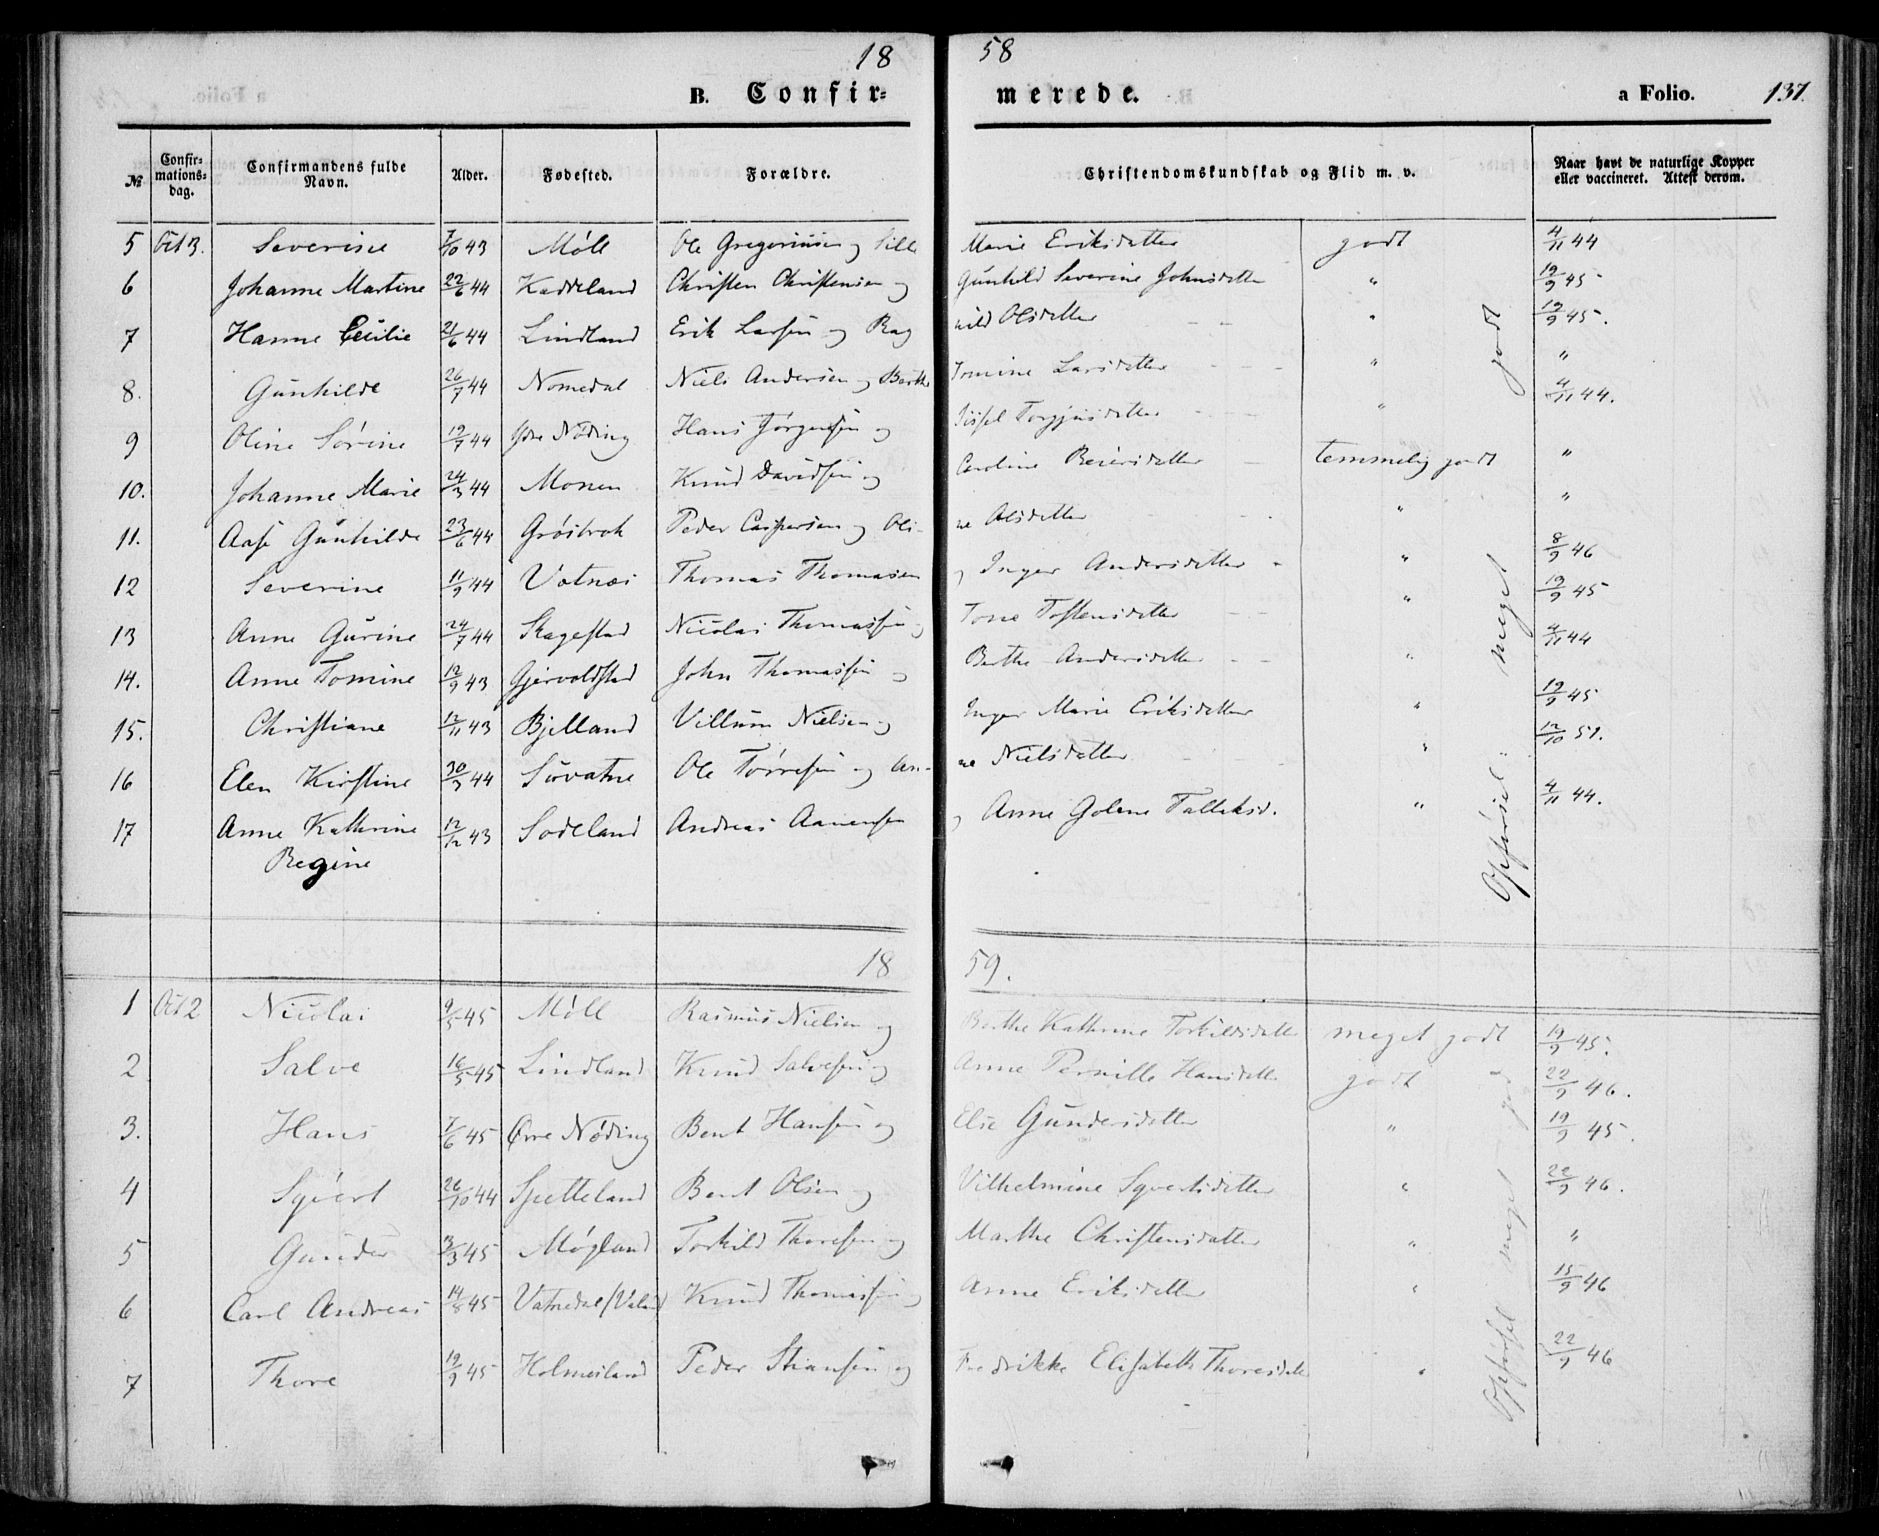 18 58
B. Confir= merede. a Folio. 137.
№ Confir=mations=dag. Confirmandens fulde Navn. Alder. Fødested. Forældre. Christendomskundskab og Flid m. v. Naar havt de naturlige Kopper eller vaccineret. Attest derom.
5 Oct 3. Severine 7/10 43 Møll Ole Gregoriusen og Sille Marie Eriksdatter godt 4/11 44
6 Johanne Martine 22/6 44 Kaddeland Christen Christensen og Gunhild Severine Johnsdatter " 19/9 45
7 Hanne Cecilie 21/6 44 Lindland Erik Larsen og Rag nild Olsdatter " 19/9 45.
8. Gunhilde 26/7 44 Nomedal Niels Andersen og Berthe Tomine Larsdatter " "
9 Oline Sørine 19/7 44 Ydre Nøding Hans Jørgensen og Sissel Torgjusdatter " 4/11 44.
10. Johanne Marie 24/3 44 Monen Knud Davidsen og Caroline Beiersdatter temmelig godt "
11. Aase Gunhilde 23/6 44 Grøsbrok Peder Caspersen og Oli- ne Olsdatter " "
12 Severine 11/9 44 Vatnes Thomas Thomasen og Inger Andersdatter " 8/9 46
13 Anne Gurine 24/7 44 Skagestad Nicolai Thomassen og Tone Tostensdatter " 19/9 45
14. Anne Tomine 12/9 43 Gjervoldstad John Thomassen og Berthe Andersdatter " 4/11 44
15. Christiane 12/11 43 Bjelland Villum Nielsen og Inger Marie Eriksdatter " 19/9 45
16 Elen Kirstine 30/3 44 Søvatne Ole Tørresen og An- ne Nielsdatter " 12/10 51.
17 Anne Kathrine 12/12 43 Sodeland Andreas Aanensen og Anne Golene Tallaksd. " 4/11 44.
Regine
Opførsel: meget godt
18 59.
1 Oct 2 Nicolai 9/5 45 Møll Rasmus Nielsen og Berthe Kathrine Torkildsdatter meget godt 19/9 45.
2 Salve 16/5 45 Lindland Knud Salvesen og Anne Pernille Hansdatter godt 22/9 46.
3. Hans 7/6 45 Øvre Nøding Bent Hansen og Elie Gundersdatter " 19/9 45.
4 Syvert 26/10 44 Spetteland Bent Olsen og Vilhelmine Syvertsdatter " 22/9 46.
5 Gunder 3/3 45 Møgland Torkild Thoresen og Marthe Christensdatter " "
6 Carl Andreas 14/8 45 Vatnedal Knud Thomassen og Anne Eriksdatter " 15/9 46
7 Thore 19/9 45 Holmesland Peder Stiansen og Fredrikke Elisabeth Thoresdatt " 22/9 46
Opførsel meget god